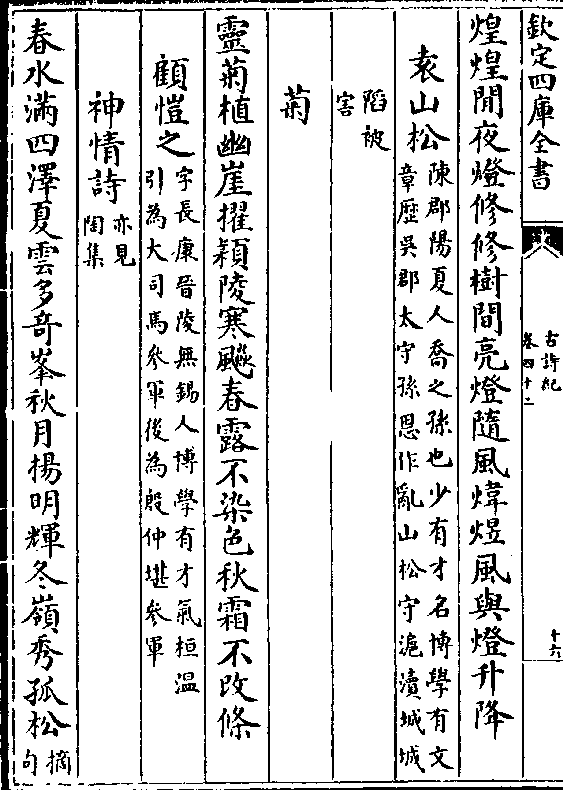 欽定四庫全書
古詩紀
卷四十二
十六
煌煌閒夜燈修修樹間亮燈隨風煒煜風與燈升降
袁山松
陳郡陽夏人喬之孫也少有才名博學有文
章歴吳郡太守孫恩作亂山松守滬瀆城城
䧟被
害
菊
靈菊植幽崖擢頴陵寒飇春露不染色秋霜不改條
顧愷之
字長康晉陵無錫人博學有才氣桓温
引為大司馬參軍後為殷仲堪參軍
神情詩
亦見
陶集
春水滿四澤夏雲多奇峯秋月揚明輝冬嶺秀孤松
摘
句